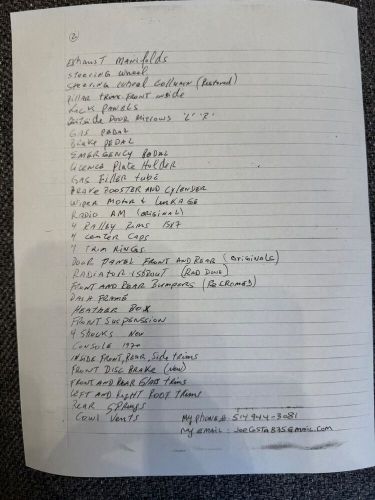 2
Exhaust Manifolds
Steering Wheel
Steering Wheel Collumn (Restored)
Pillar trims. Front inside
Kick Panels
Outside Door Mirrows "L" "R"
Gas Pedal
Brake Pedal
Emergency Pedal
Licence Plate Holder
Gas Filler tube
Brake Booster and Cylender
Wiper Motor & Linkage
Radio AM (original)
4 Ralley Rims 15x7
4 center caps
4 Trim Rings
Door Panel Front and Rear (originals)
Radiator + Shrout (Rad Done)
Front and Rear Bumpers (ReCromed)
Dash Frame
Heather Box
Front Suspension
4 Shocks New
Console 1970
Inside Front, Rear, Side trims
Front Disc Brake (New)
Front and Rear Glass trims
Left and Right Roof Trims
Rear Springs
Cowl Vents
My Phone #: 514 944-3081
My Email: JoeCosta835@gmail.com